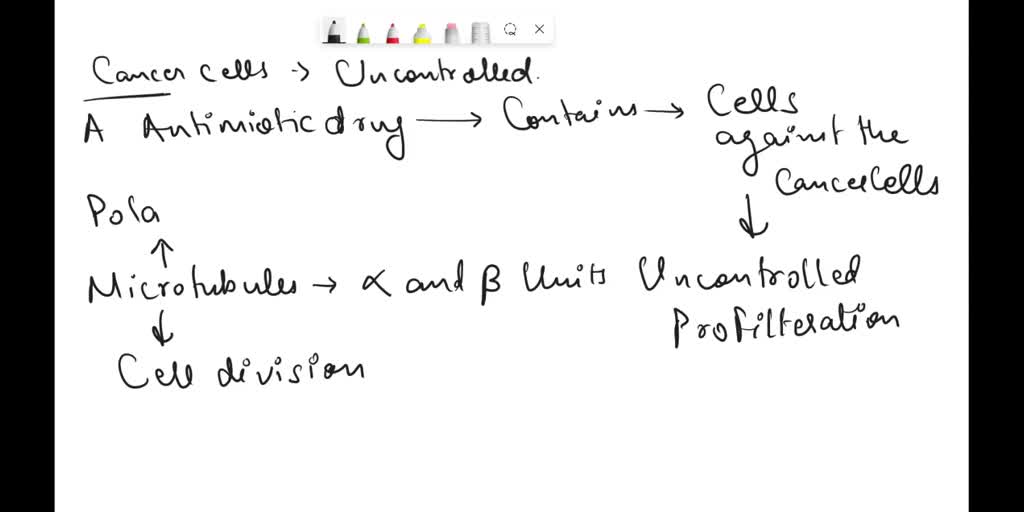 Cancer cells → Uncontrolled.
A Antimiotic drug → Contains → Cells against the CancerCells
Pola
Microtubules → α and β Units
Cell division
Uncontrolled
Profilteration